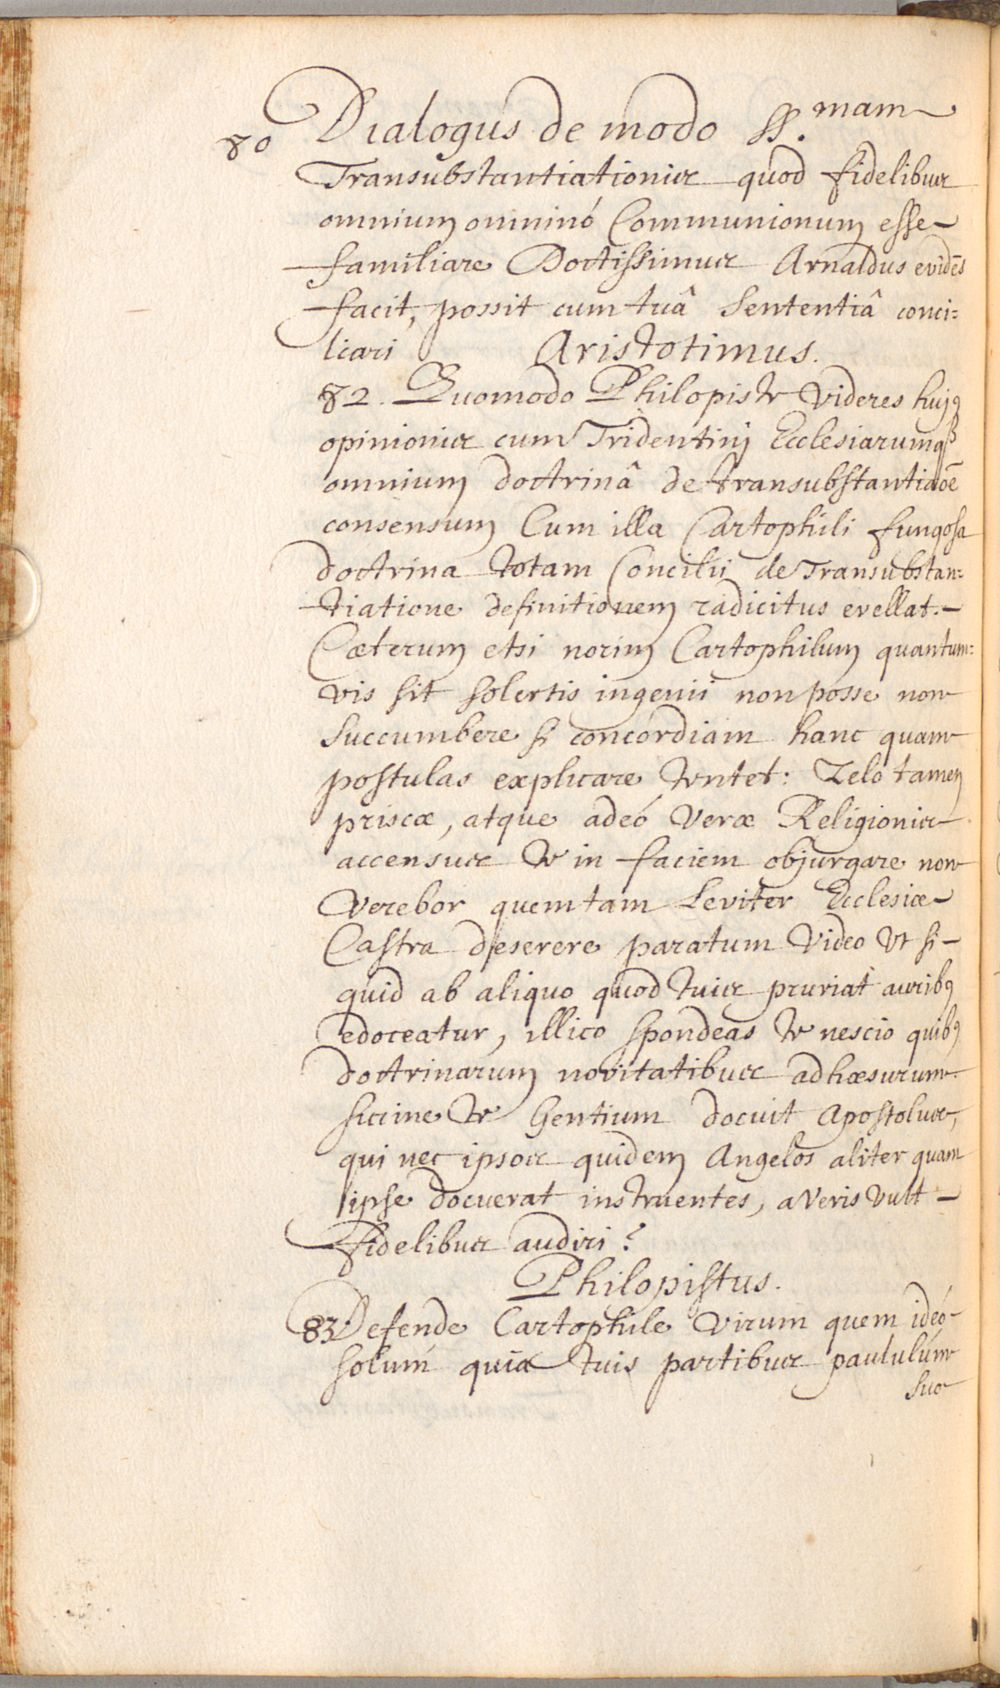 80 Dialogus de modo SS.mam
Transubstantiationis quod fidelibus
omnium omninó Communionum esse
familiare Doctissimus Arnaldus evidēs
facit, possit cum tuâ Sententiâ conci=
liari Aristotimus.
82. Quomodo Philopiste Videres hujꝰ
opinionis cum Tridentini Ecclesiarumqꝫ
omnium doctrinâ de transubstantiaōe
consensum Cum illa Cartophili fungosa
doctrina totam Concilii de Transubstan=
tiatione definitionem radicitus evellat.
Cæterum etsi norim Cartophilum quantum=
vis sit solertis ingenii non posse non
succumbere si concordiam hanc quam
postulas explicare tentet: Zelo tamen
priscæ, atque adeó Veræ Religionis
accensus te in faciem objurgare non
Verebor quem tam Leviter Ecclesiæ
Castra deserere paratum Video Vt si
quid ab aliquo quod tuis pruriat auribꝰ
edoceatur, illico spondeas te nescio quibꝰ
doctrinarum novitatibus adhæsurum.
siccine te Gentium docuit Apostolus,
qui nec ipsos quidem Angelos aliter quam
ipse docuerat instruentes, a Veris Vult
Fidelibus audiri?
Philopistus.
83. Defende Cartophile Virum quem ideó
solum quia tuis partibus paululúm
suc